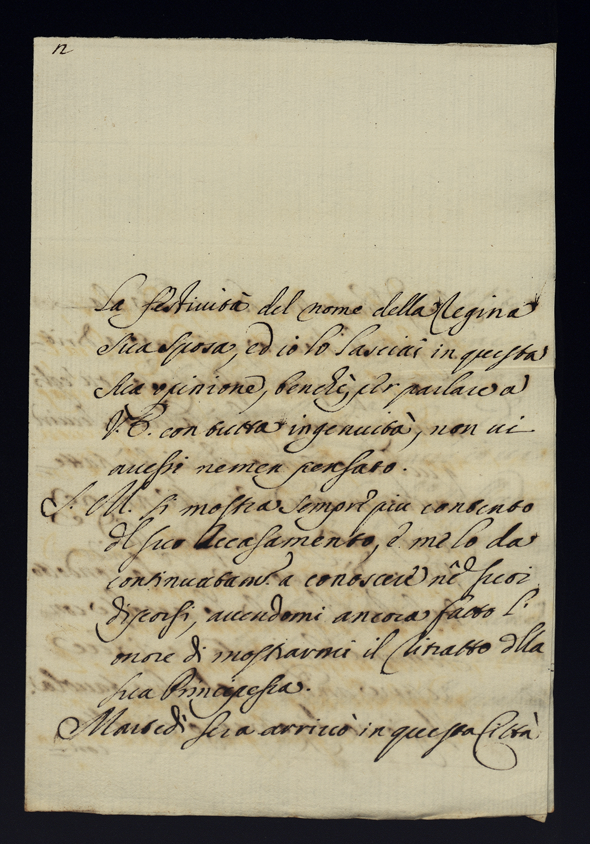 n
La festività del nome della Regina
sua sposa, ed io lo lasciai in questa
sua opinione, benchè, per parlare a
V. E. con tutta ingenuità, non vi
avessi nemen pensato.
S. M. si mostra sempre più contento
del suo Accasamento, e me lo da
continuatam.te a conoscere ne' suoi
discorsi, avendomi ancora fatto l'
onore di mostrarmi il Ritratto della
sua Principessa.
Martedì sera arrivò in questa Città